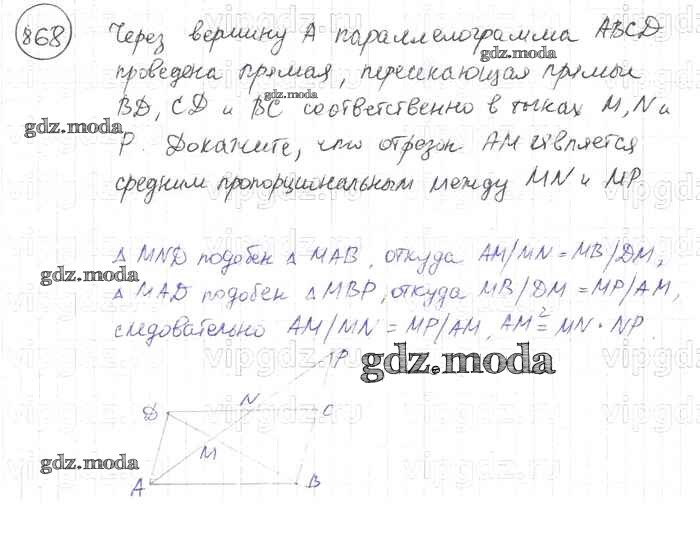 868 Через вершину А параллелограмма ABCD
проведена прямая, пересекающая прямые
BD, CD и BC соответственно в точках M, N и
P. Докажите, что отрезок AM является
средним пропорциональным между MN и MP
Δ MND подобен Δ MAB, откуда AM/MN = MB/DM,
Δ MAD подобен Δ MBP, откуда MB/DM = MP/AM,
следовательно AM/MN = MP/AM, AM² = MN · NP.
P
D N C
M
A B
gdz.moda
gdz.moda
gdz.moda
gdz.moda
gdz.moda
gdz.moda
gdz.moda
vipgdz.ru